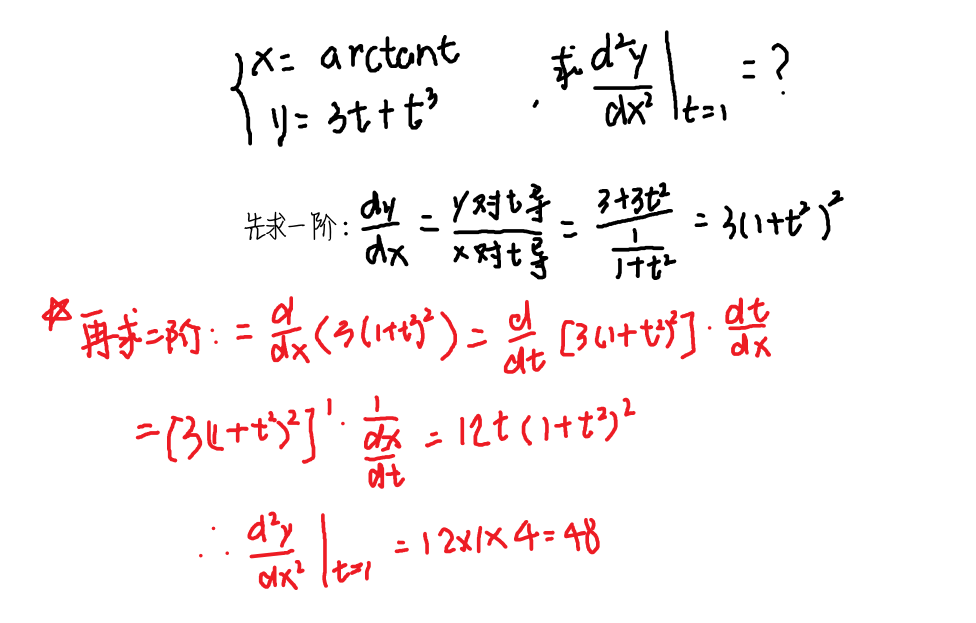 { x = arctant
y = 3t + t³ , 求 d²y/dx² |t=1 = ?
先求一阶: dy/dx = y对t导/x对t导 = (3+3t²)/(1/(1+t²)) = 3(1+t²)²
☆ 再求二阶: = d/dx (3(1+t²)²) = d/dt [3(1+t²)²] · dt/dx
= [3(1+t²)²]' · 1/(dx/dt) = 12t(1+t²)²
∴ d²y/dx² |t=1 = 12×1×4 = 48